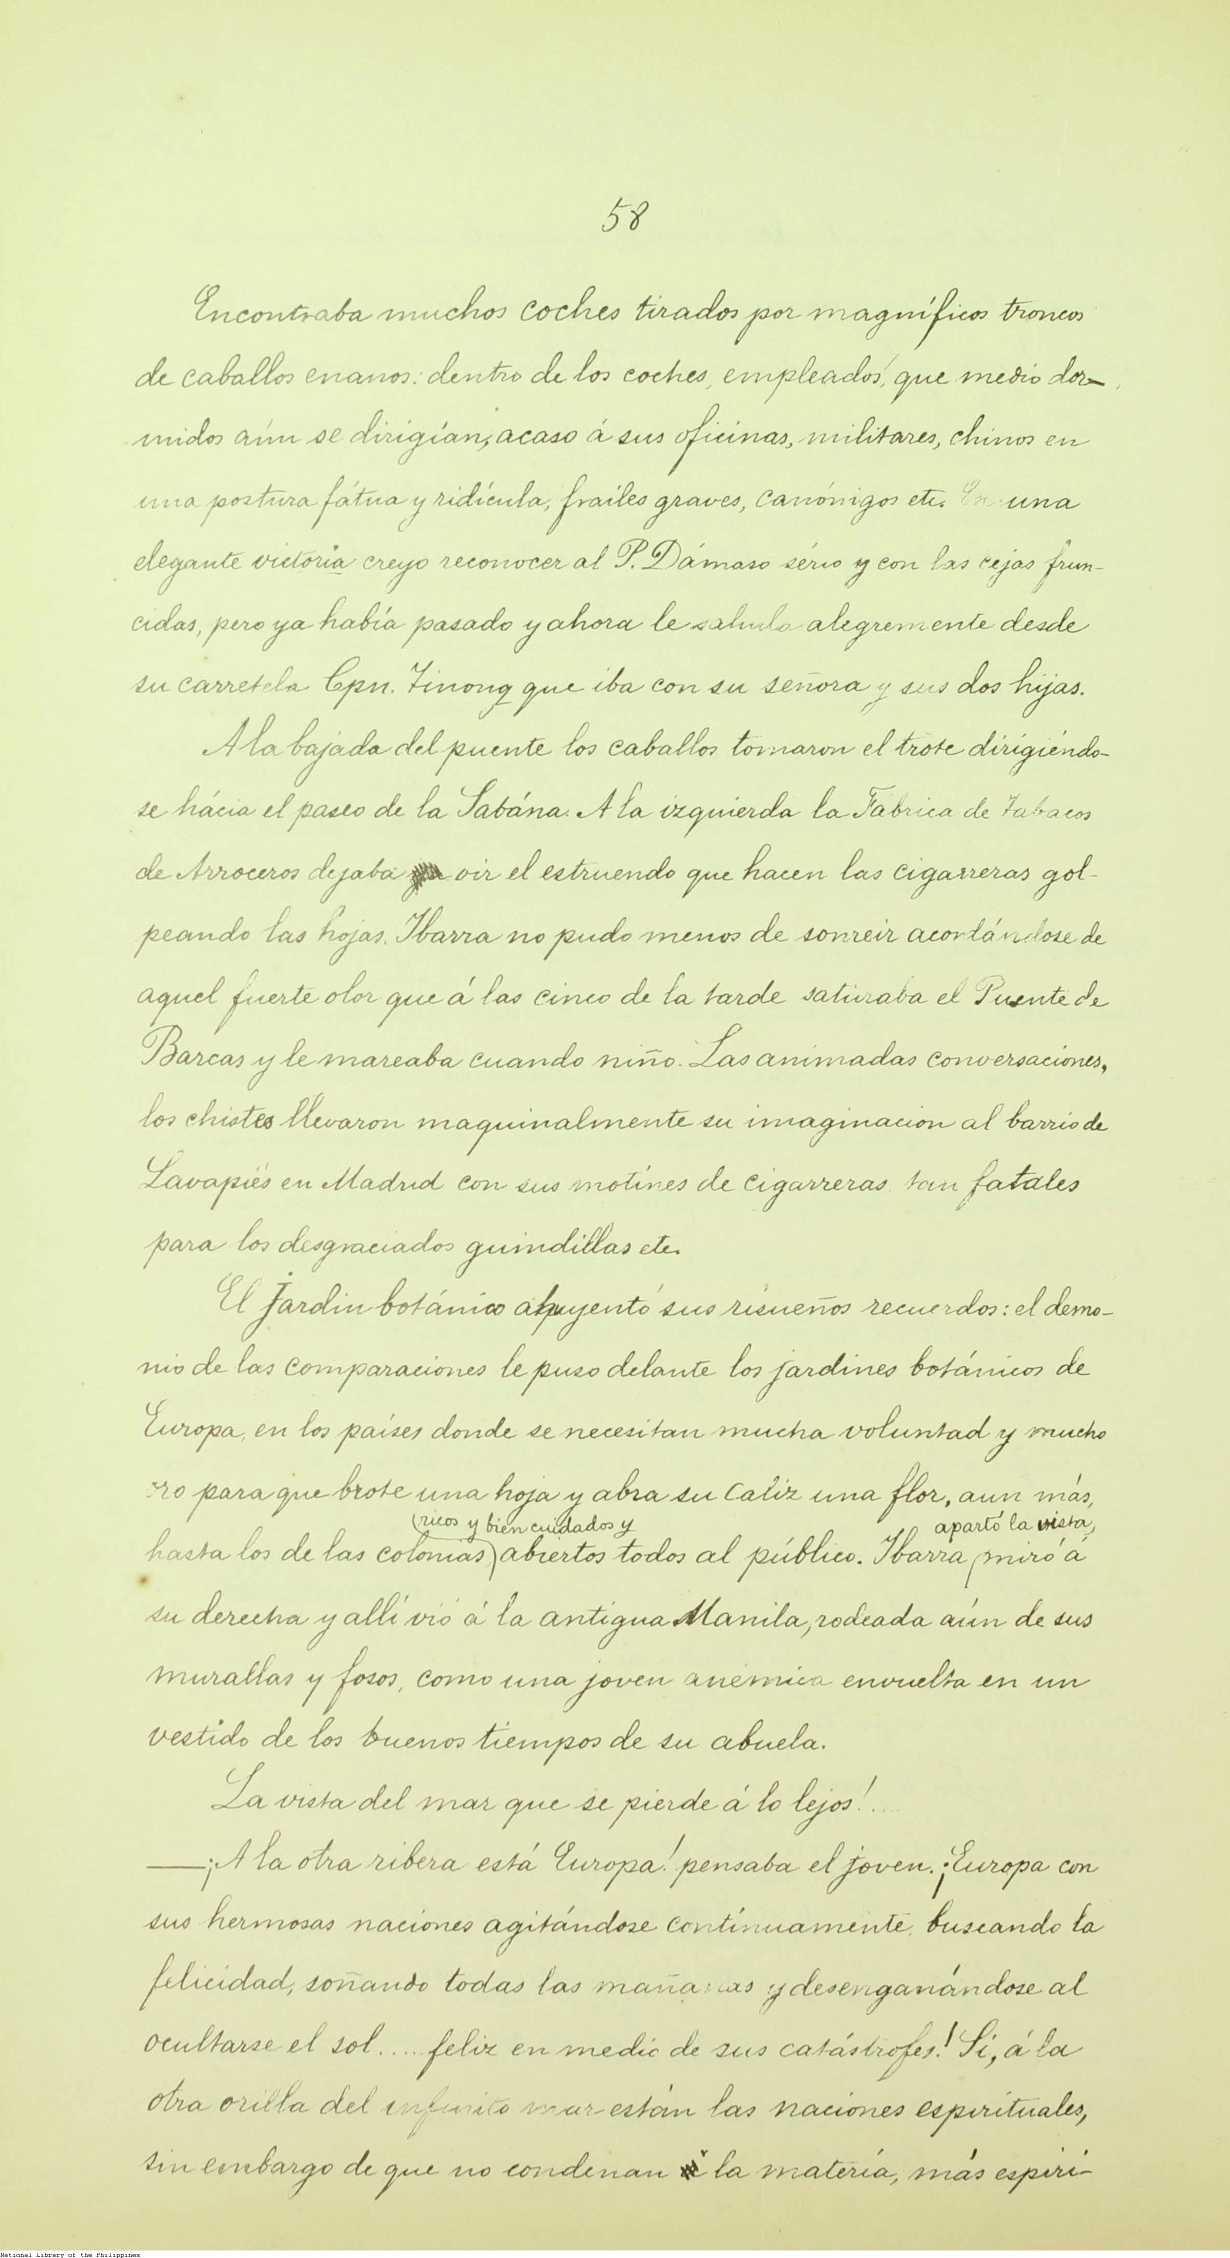 58
Encontraba muchos coches tirados por magníficos troncos
de caballos enanos: dentro de los coches, empleados, que medio dor-
midos aún se dirigían, acaso á sus oficinas, militares, chinos en
una postura fátua y ridícula, frailes graves, canónigos etc. En una
elegante victoria creyo reconocer al P. Dámaso sério y con las cejas frun-
cidas, pero ya había pasado y ahora le saluda alegremente desde
su carretela Cpn. Tinong que iba con su señora y sus dos hijas.
A la bajada del puente los caballos tomaron el trote dirigiéndo-
se hácia el paseo de la Sabána. A la izquierda la Fabrica de Tabacos
de Arroceros dejaba oir el estruendo que hacen las cigarreras gol-
peando las hojas. Ibarra no pudo menos de sonreir acordándose de
aquel fuerte olor que á las cinco de la tarde saturaba el Puente de
Barcas y le mareaba cuando niño. Las animadas conversaciones,
los chistes llevaron maquinalmente su imaginacion al barrio de
Lavapiés en Madrid con sus motines de cigarreras tan fatales
para los desgraciados guindillas etc.
El jardin botánico ahuyentó sus risueños recuerdos: el demo-
nio de las comparaciones le puso delante los jardines botánicos de
Europa, en los países donde se necesitan mucha voluntad y mucho
oro para que brote una hoja y abra su caliz una flor, aun más,
(ricos y bien cuidados y apartó la vista,
hasta los de las colonias) abiertos todos al público. Ibarra (miró á
su derecha y allí vió á la antigua Manila, rodeada aún de sus
murallas y fosos, como una joven anémica envuelta en un
vestido de los buenos tiempos de su abuela.
La vista del mar que se pierde á lo lejos!....
—¡A la otra ribera está Europa! pensaba el joven. ¡Europa con
sus hermosas naciones agitándose contínuamente, buscando la
felicidad, soñando todas las mañanas y desenganándose al
ocultarse el sol..... feliz en medio de sus catástrofes! Sí, á la
otra orilla del infinito mar están las naciones espirituales,
sin embargo de que no condenan la materia, más espiri-
National Library of the Philippines